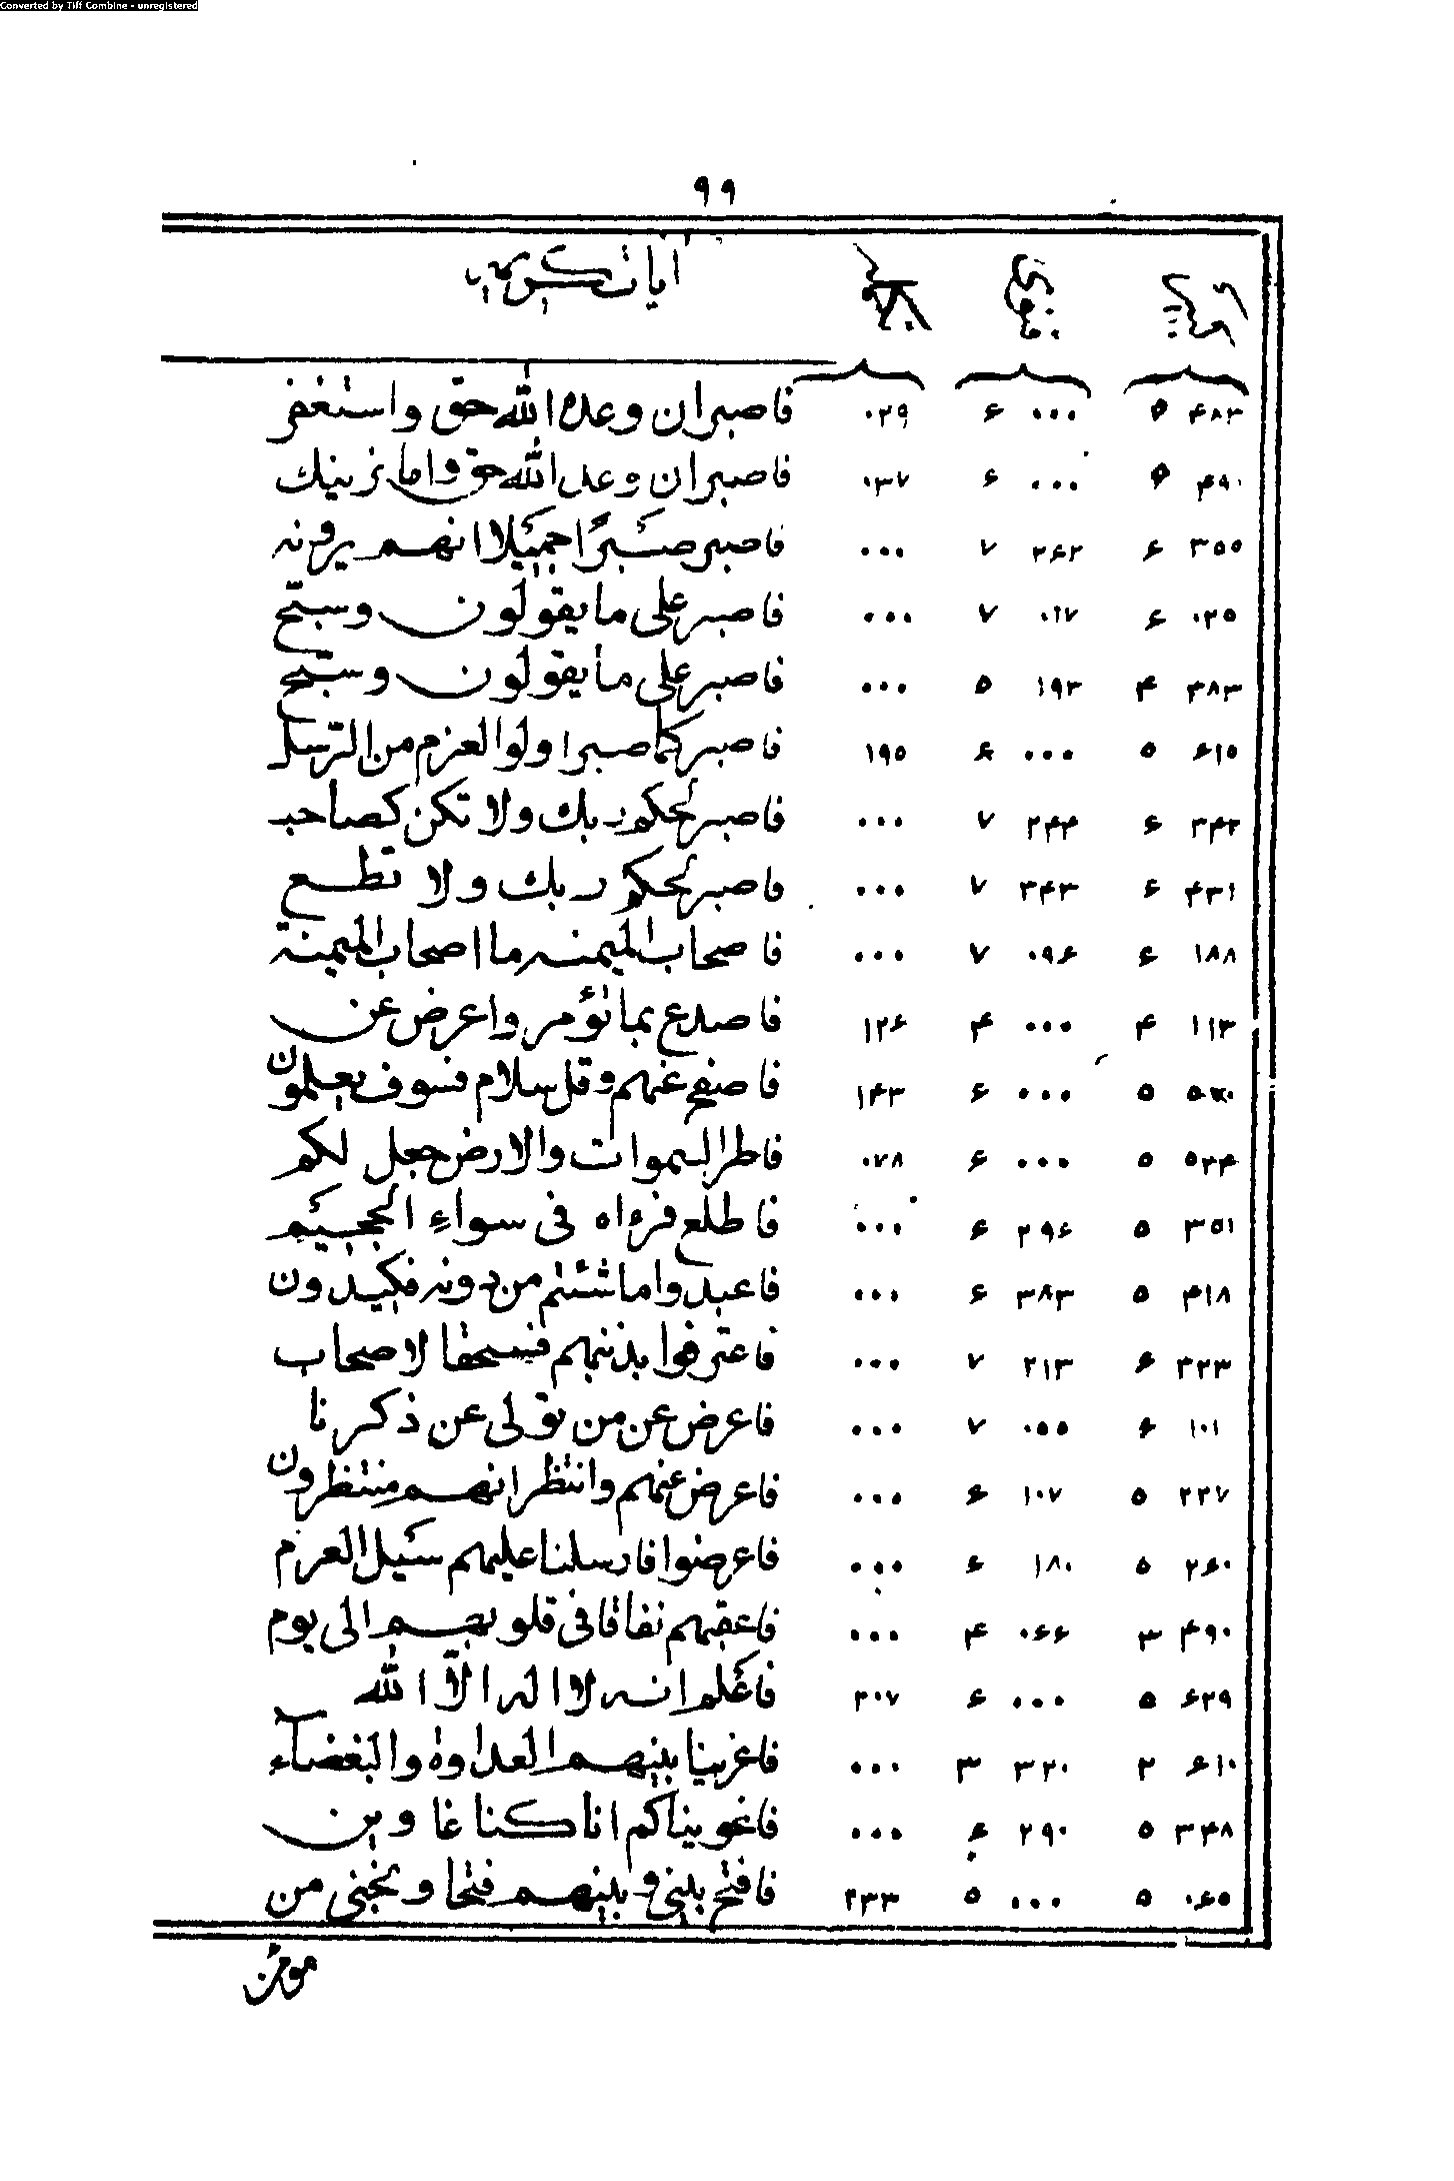 Converted by Tiff Combine - unregistered
٩٩
آيات كريمه
۴۸۳ ۵ ۰۰۰ ۶ ۰۲۹ فاصبر ان وعده الله حق واستغفر
۴۹۰ ۵ ۰۰۰ ۶ ۰۳۷ فاصبر ان وعد الله حق واما نرينك
۳۵۵ ۶ ۲۶۲ ۷ ۰۰۰ فاصبر صبرًا جميلا انهم يرونه
۰۲۵ ۶ ۰۱۷ ۷ ۰۰۰ فاصبر على ما يقولون وسبّح
۳۸۳ ۴ ۱۹۳ ۵ ۰۰۰ فاصبر على ما يقولون وسبّح
۶۱۵ ۵ ۰۰۰ ۶ ۱۹۵ فاصبر كما صبر اولوا العزم من الرّسل
۳۴۲ ۶ ۲۴۴ ۷ ۰۰۰ فاصبر لحكم ربك ولا تكن كصاحب
۴۳۱ ۶ ۳۴۳ ۷ ۰۰۰ فاصبر لحكم ربك ولا تطع
۱۸۸ ۶ ۰۹۶ ۷ ۰۰۰ فاصحاب الميمنه ما اصحاب الميمنة
۱۱۳ ۴ ۰۰۰ ۴ ۱۲۶ فاصدع بما تؤمر واعرض عن
۵ ۰۰۰ ۶ ۱۴۳ فاصفح عنهم وقل سلام فسوف يعلمون
۵۳۴ ۵ ۰۰۰ ۶ ۰۷۸ فاطر السموات والارض جعل لكم
۳۵۱ ۵ ۲۹۶ ۶ ۰۰۰ فاطلع فرءاه فى سواء الجحيم
۴۱۸ ۵ ۳۸۳ ۶ ۰۰۰ فاعبدوا ما شئتم من دونه فكيدون
۳۲۳ ۶ ۲۱۳ ۷ ۰۰۰ فاعترفوا بذنبهم فسحقا لاصحاب
۱۰۱ ۶ ۰۵۵ ۷ ۰۰۰ فاعرض عن من تولى عن ذكرنا
۲۲۷ ۵ ۱۰۷ ۶ ۰۰۰ فاعرض عنهم وانتظر انهم منتظرون
۲۶۰ ۵ ۱۸۰ ۶ ۰۰۰ فاعرضوا فارسلنا عليهم سيل العرم
۴۹۰ ۳ ۰۶۶ ۴ ۰۰۰ فاعقبهم نفاقا فى قلوبهم الى يوم
۶۲۹ ۵ ۰۰۰ ۶ ۲۰۷ فاعلم انه لا اله الّا الله
۶۱۰ ۲ ۳۲۰ ۳ ۰۰۰ فاغرينا بينهم العداوة والبغضاء
۳۴۸ ۵ ۲۹۰ ۶ ۰۰۰ فاغويناكم انا كنا غاوين
۰۶۵ ۵ ۰۰۰ ۵ ۲۳۳ فافتح بينى وبينهم فتحا ونجنى من